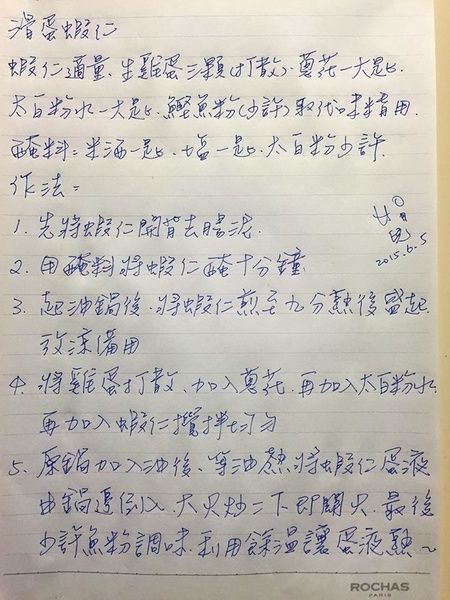 滑蛋蝦仁
蝦仁適量、生雞蛋三顆(打散)、蔥花一大匙.
太白粉水一大匙、鰹魚粉(少許)取代味精用.
醃料=米酒一匙、塩一匙、太白粉少許.
作法=
1. 先將蝦仁開背去腸泥.
2015.6.5
2. 用醃料將蝦仁醃十分鐘
3. 起油鍋後、將蝦仁煎至九分熟後盛起.
放涼備用
4. 將雞蛋打散、加入蔥花、再加入太白粉水
再加入蝦仁攪拌均勻
5. 原鍋加入油後、等油熱將蝦仁蛋液
由鍋邊倒入、大火炒二下即關火、最後
少許魚粉調味、利用餘溫讓蛋液熟~
ROCHAS
PARIS